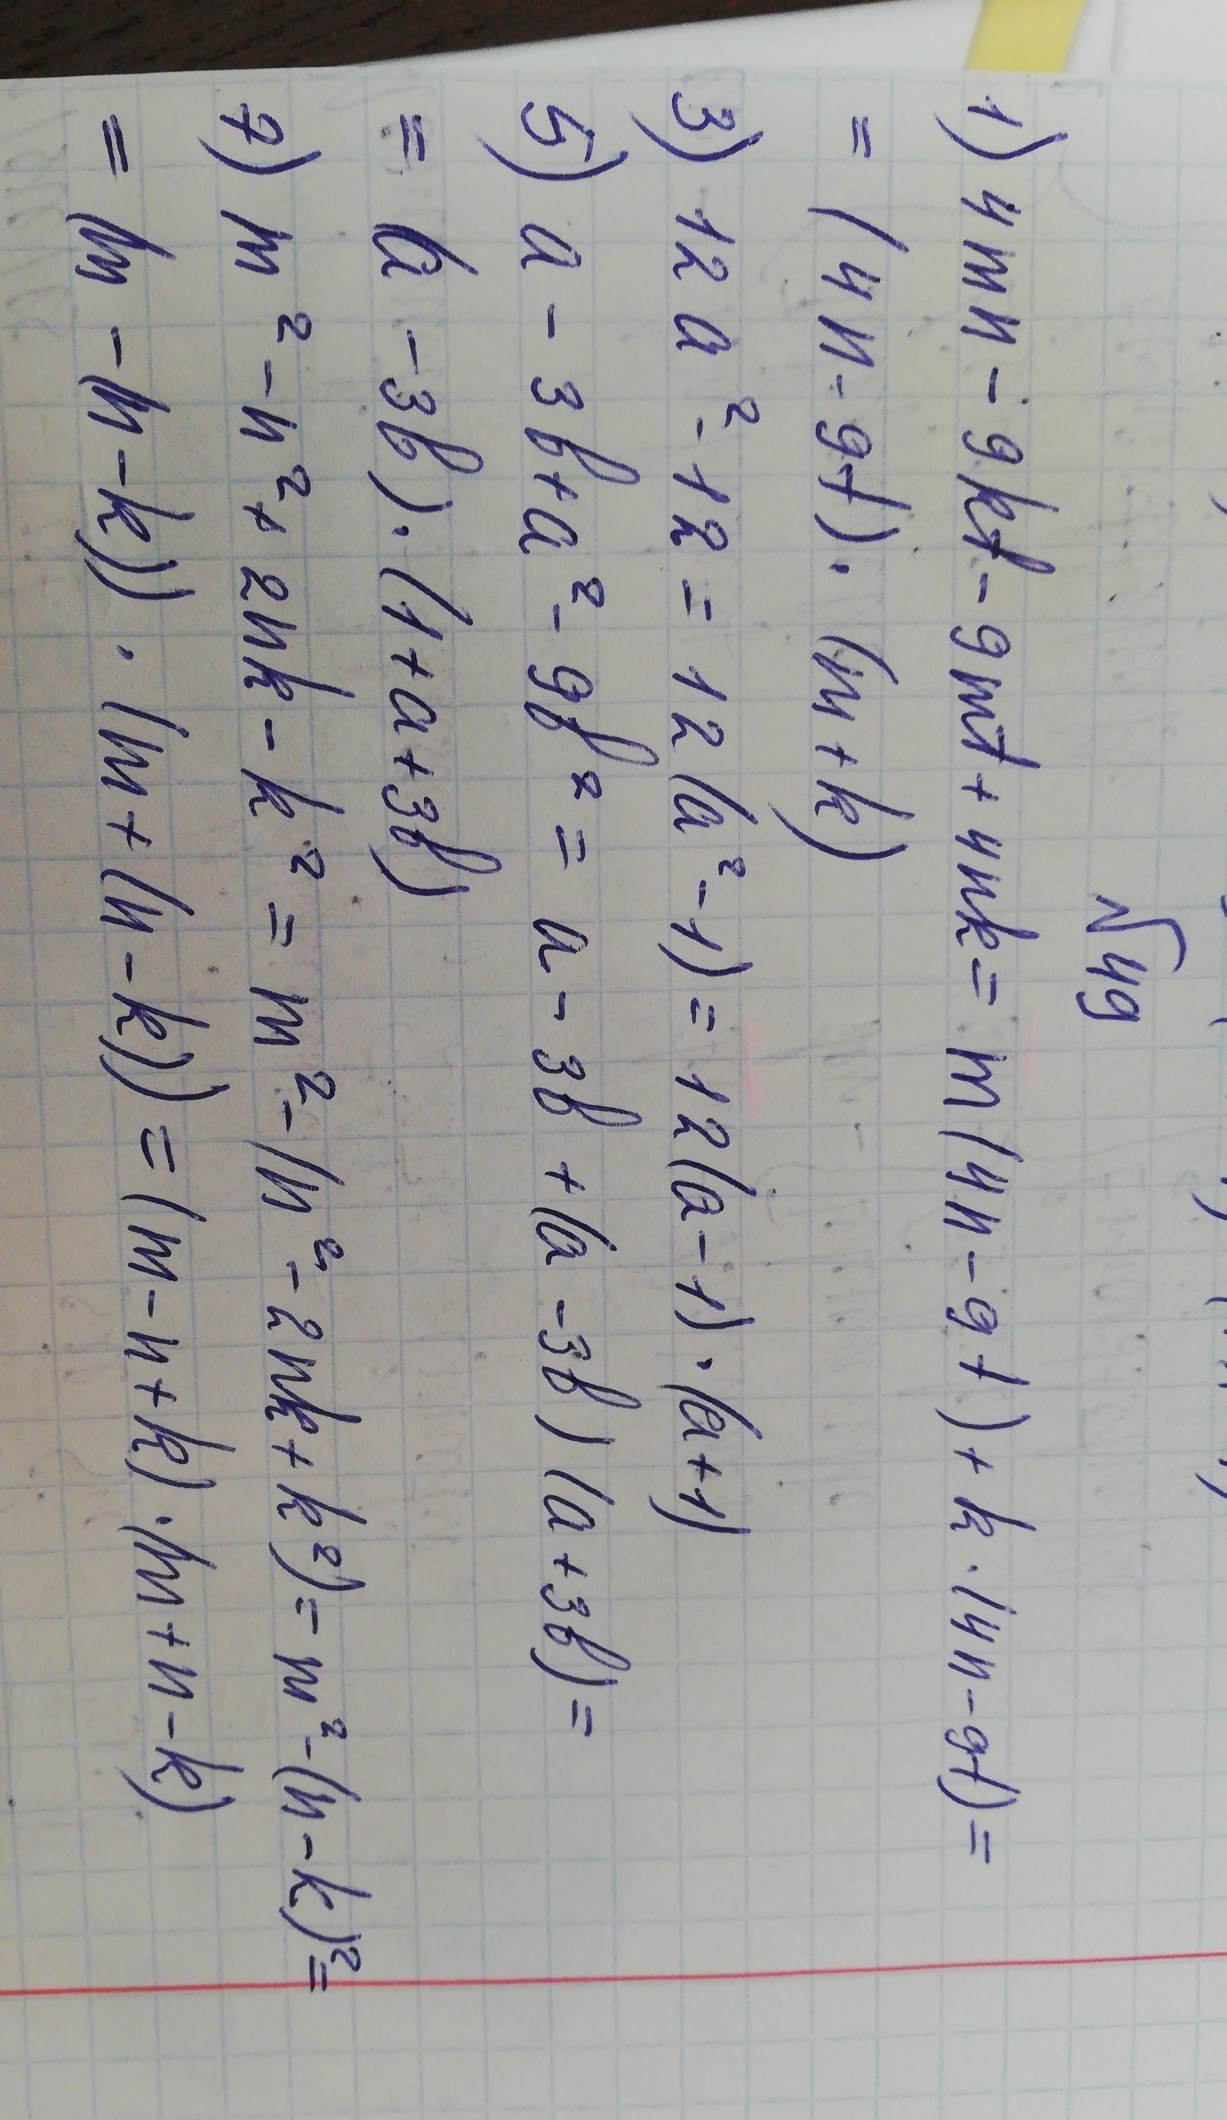 √49
1) 4mn - 9kt - 9mt + 4nk = m(4n - 9t) + k · (4n - 9t) =
= (4n - 9t) · (m + k)
3) 12a² - 12 = 12(a² - 1) = 12(a - 1) · (a + 1)
5) a - 3b + a² - 9b² = a - 3b + (a - 3b)(a + 3b) =
= (a - 3b) · (1 + a + 3b)
7) m² - n² + 2nk - k² = m² - (n² - 2nk + k²) = m² - (n - k)² =
= (m - (n - k)) · (m + (n - k)) = (m - n + k) · (m + n - k)